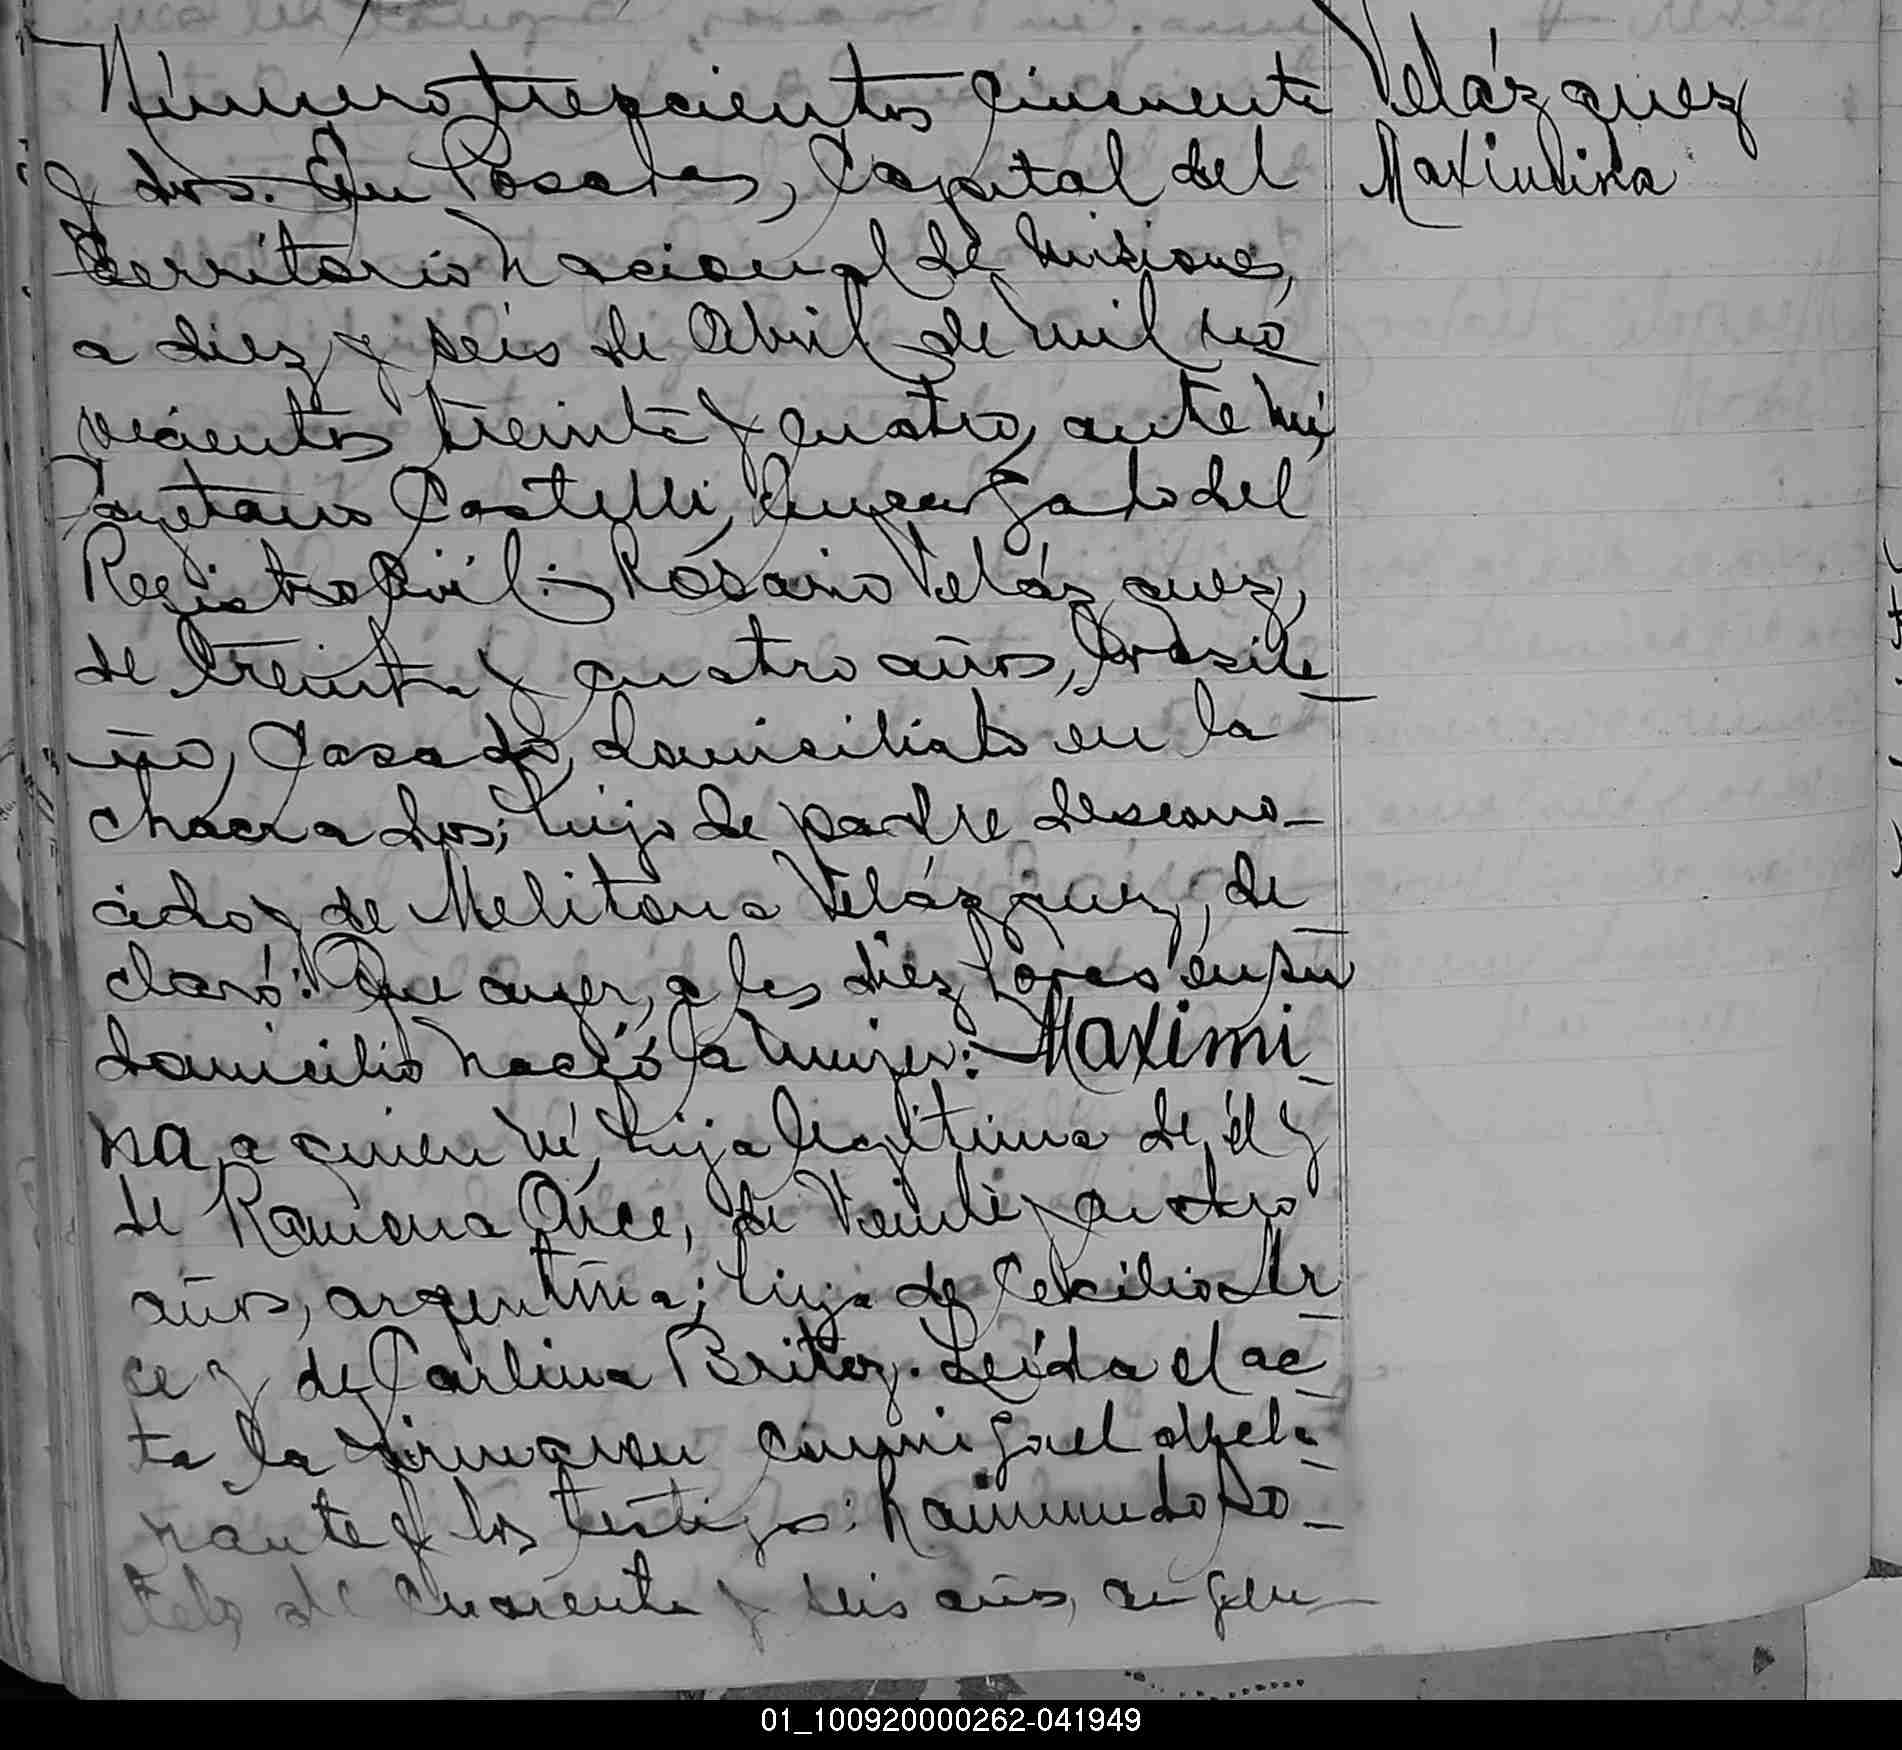 Número trescientos cincuenta
y dos. En Posadas, Capital del
Territorio Nacional de Misiones,
a diez y seis de Abril de mil no
vecientos treinta y cuatro, ante mi,
Cayetano Castelli, Encargado del
Registro Civil: Rosario Velázquez,
de treinta y cuatro años, brasile-
ño, Casado, domiciliado en la
chacra dos; hijo de padre descono-
cido y de Melitona Velázquez, de-
claró: Que ayer, a las diez horas en su
domicilio nació la mujer: Maximi-
na, a quien ví, hija legítima de él y
de Ramona Arce, de veinte y cuatro
años, argentina; hija de Cecilio Ar-
ce y de Carlina Britez. Leída el ac-
ta la firmaron conmigo el decla-
rante y los testigos: Raimundo So-
telo, de cuarenta y seis años, argen-
Velázquez
Maximina
01_100920000262-041949